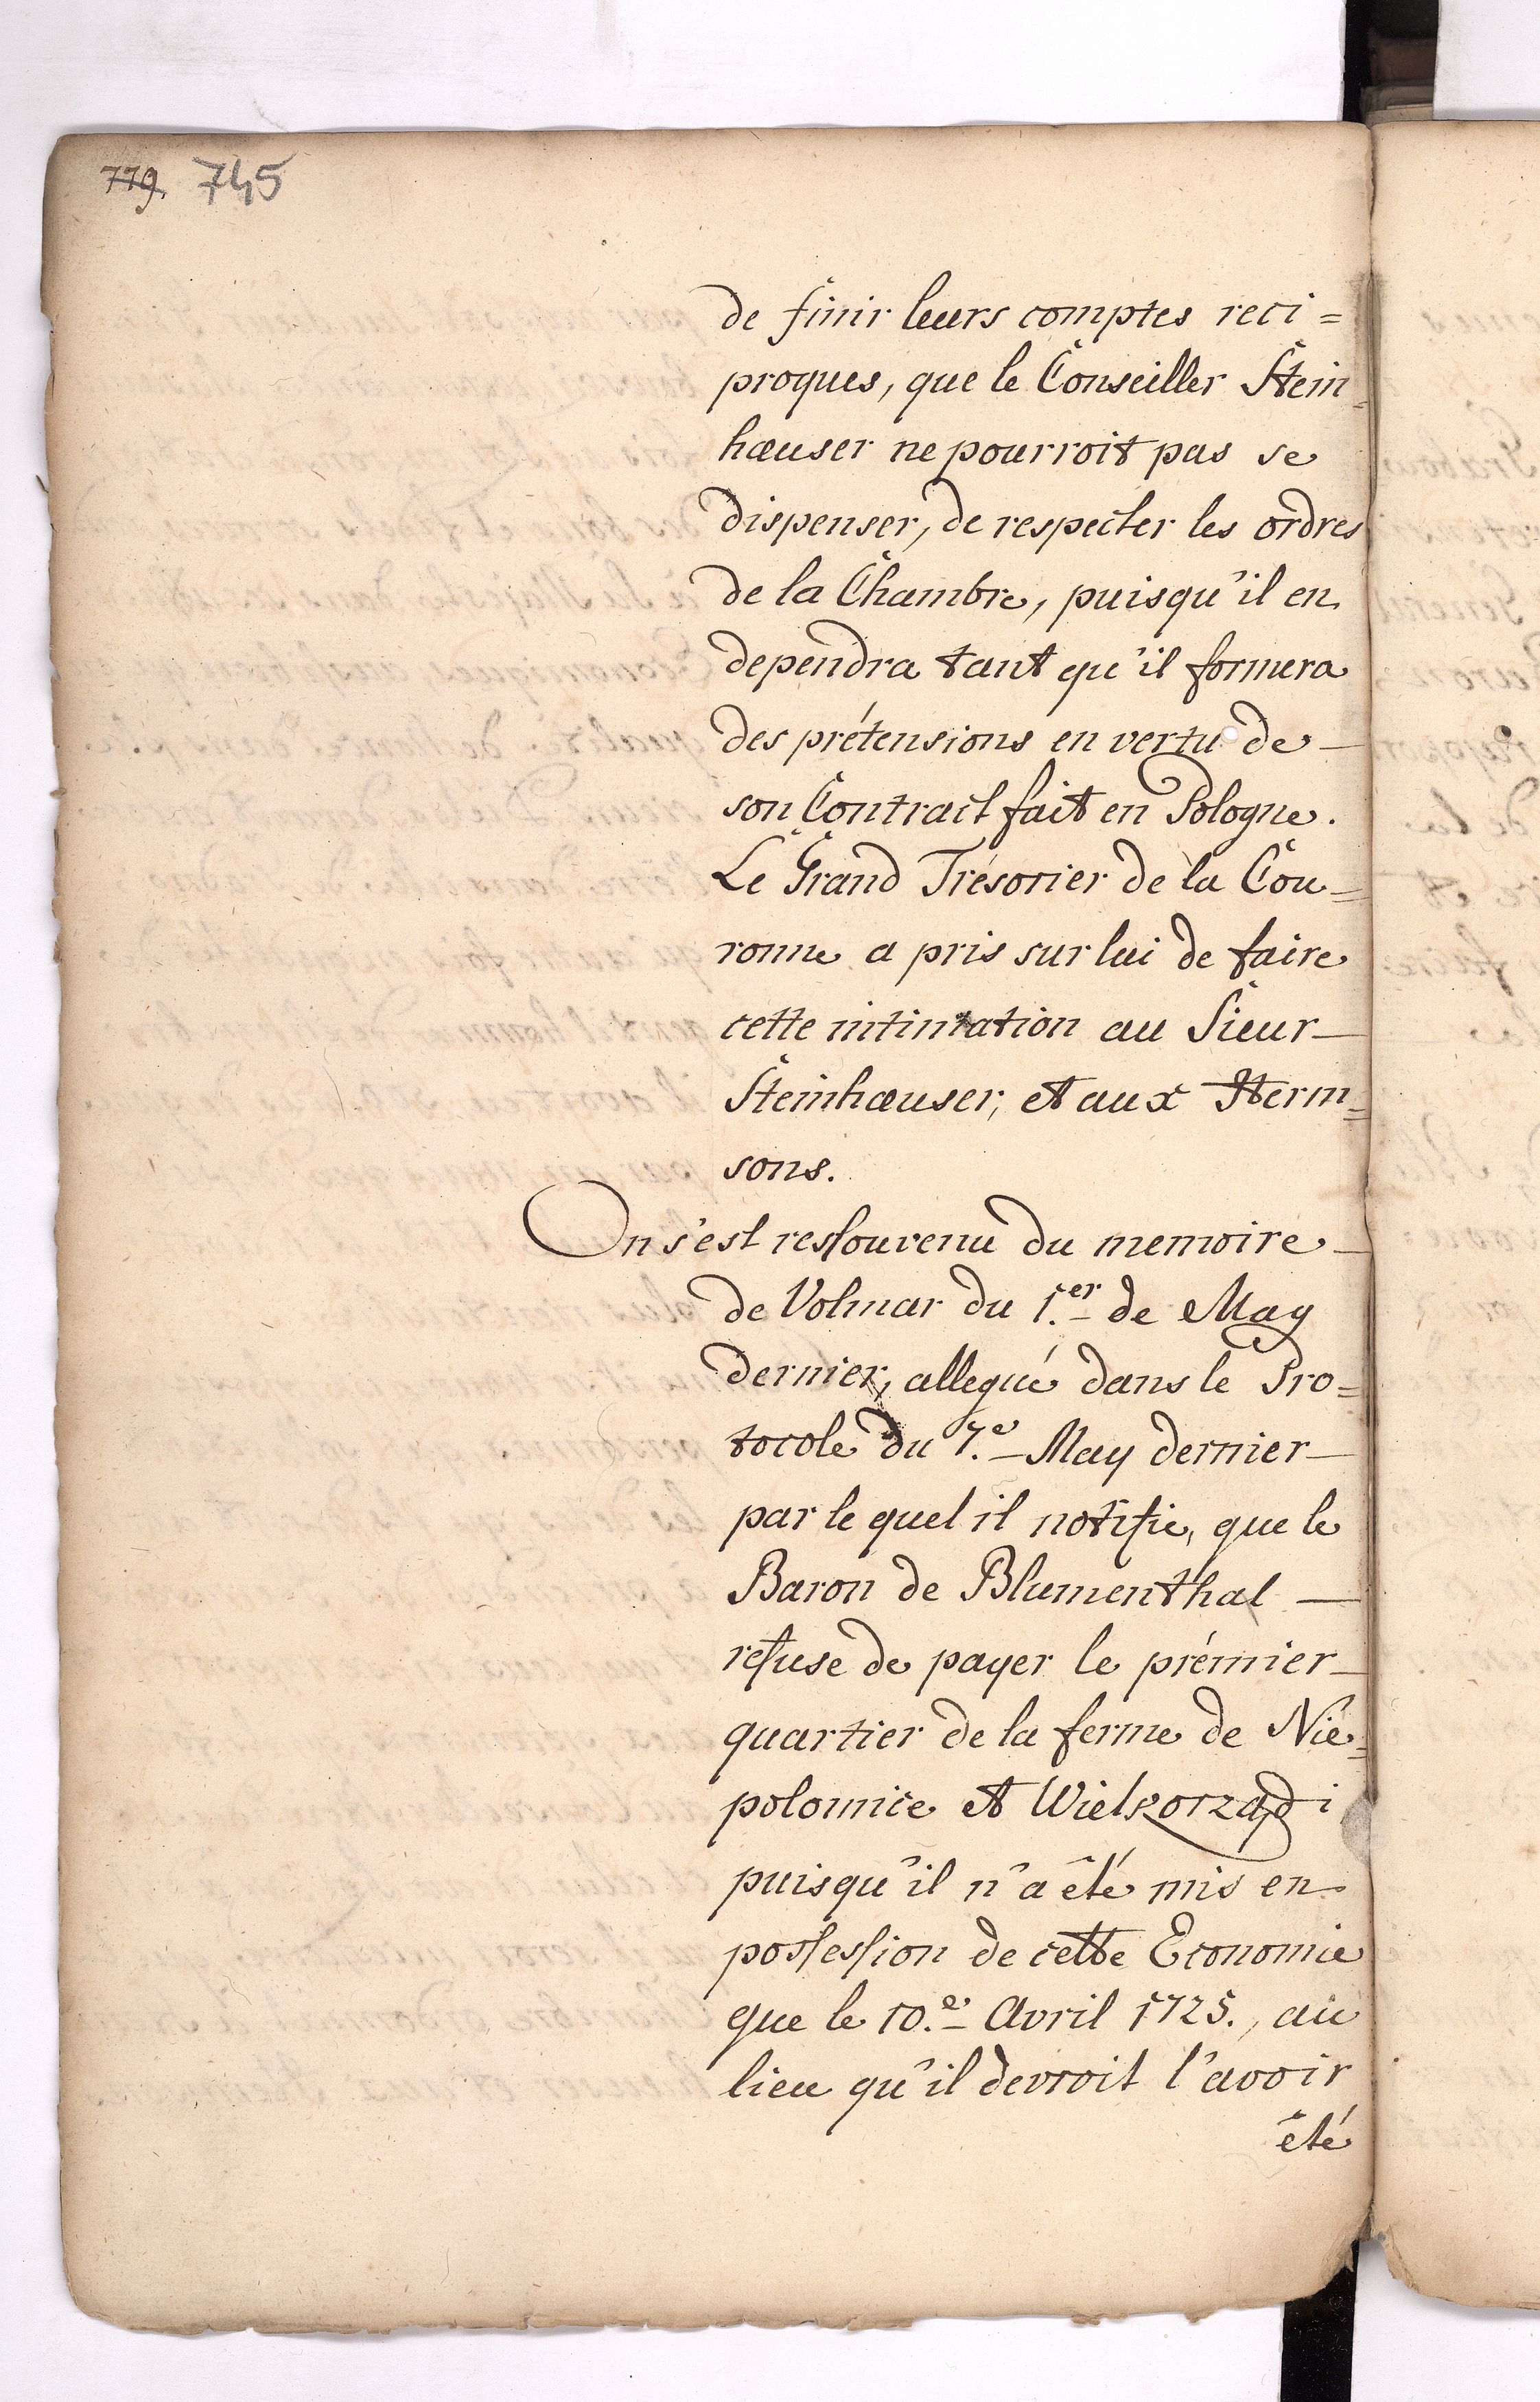 779. 745
de finir leurs comptes reci=
proques, que le Conseiller Stein=
hæuser ne pourroit pas se
dispenser, de respecter les ordres
de la Chambre, puisqu'il en
dependra tant qu'il formera
des prétensions en vertu de
son Contract fait en Pologne.
Le Grand Trésorier de la Cou=
ronne a pris sur lui de faire
cette intimation au Sieur
Steinhæuser, et aux Herm=
sons.
On s'est ressouvenu du memoire
de Volmar du 1.er de May
dernier, allegué dans le Pro=
tocole du 7.e May dernier
par le quel il notifie, que le
Baron de Blumenthal
refuse de payer le prémier
quartier de la ferme de Nie=
polomice et Wielkorządi
puisqu'il n'a êté mis en
possession de cette Economie
que le 10.e Avril 1725., au
lieu qu'il devroit l'avoir
êté